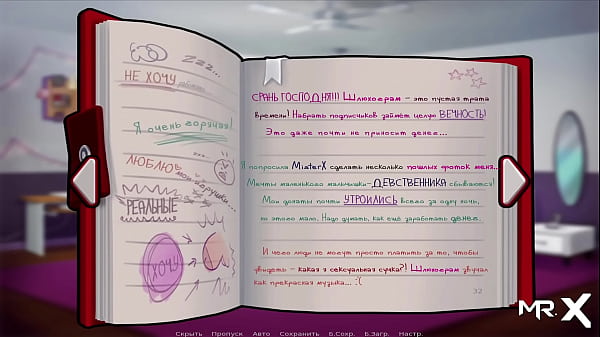 Zzz...
НЕ ХОЧУ работать...
Я очень горячая!
ЛЮБЛЮ мои игрушки...
РЕАЛЬНЫЕ
ХОЧУ
СРАНЬ ГОСПОДНЯ!!! Шлюхограм - это пустая трата
времени! Набрать подписчиков займёт целую ВЕЧНОСТЬ!
Это даже почти не приносит денег...
Я попросила MisterX сделать несколько пошлых фоток меня...
Мечты маленького мальчишки-ДЕВСТВЕННИКА сбываются!
Мои донаты почти УТРОИЛИСЬ всего за одну ночь,
но этого мало. Надо думать, как ещё заработать денег.
И чего люди не могут просто платить за то, чтобы
увидеть - какая я сексуальная сучка?! Шлюхограм звучал
как прекрасная музыка... :(
32
MR.X
Скрыть Пропуск Авто Сохранить Б.Сохр. Б.Загр. Настр.